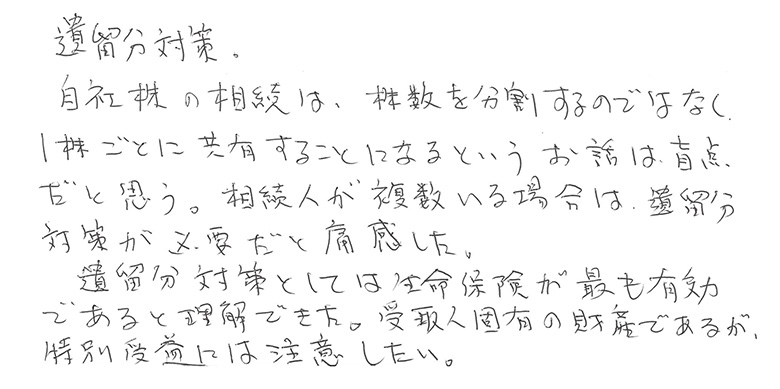 遺留分対策。
自社株の相続は、株数を分割するのではなく、
1株ごとに共有することになるというお話は盲点
だと思う。相続人が複数いる場合は、遺留分
対策が必要だと痛感した。
遺留分対策としては生命保険が最も有効
であると理解できた。受取人固有の財産であるが、
特別受益には注意したい。